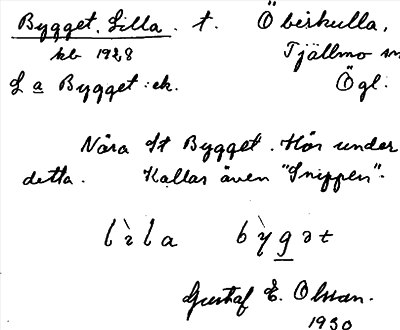 Bygget. Lilla. t. Öbiskulla,
kb 1928 Tjällmo sn
L a Bygget : ek. Ögl.
Nära St Bygget. Hör under
detta. Kallas även "Snippen".
lìla bỳgət
Gustaf E. Olsson.
1930